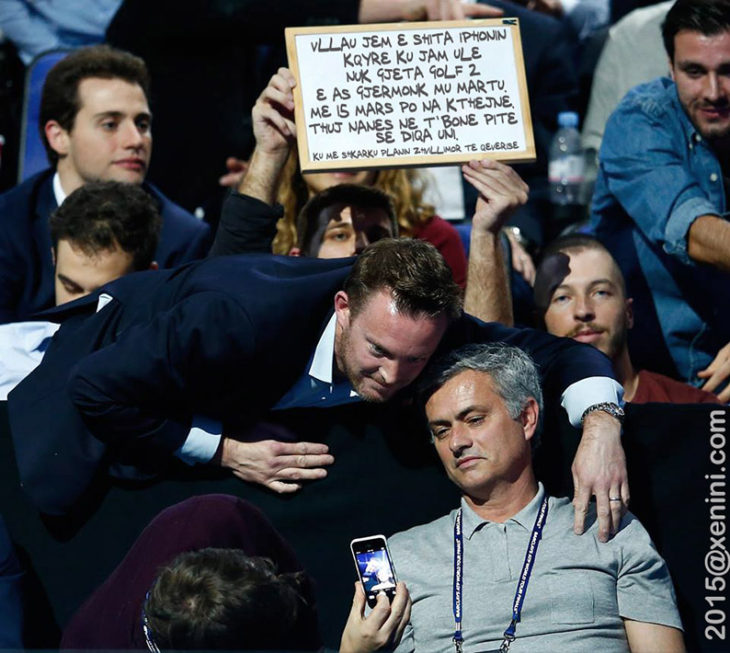 VLLAU JEM E SHITA IPHONIN
KQYRE KU JAM ULE
NUK GJETA GOLF 2
E AS GJERMONK MU MARTU.
ME 15 MARS PO NA KTHEJNE.
THUJ NANES NE T'BONE PITE
SE DIRA UNI.
KU ME SHKARKU PLANIN ZHVILLIMOR TE QEVERISE
2015@xenini.com